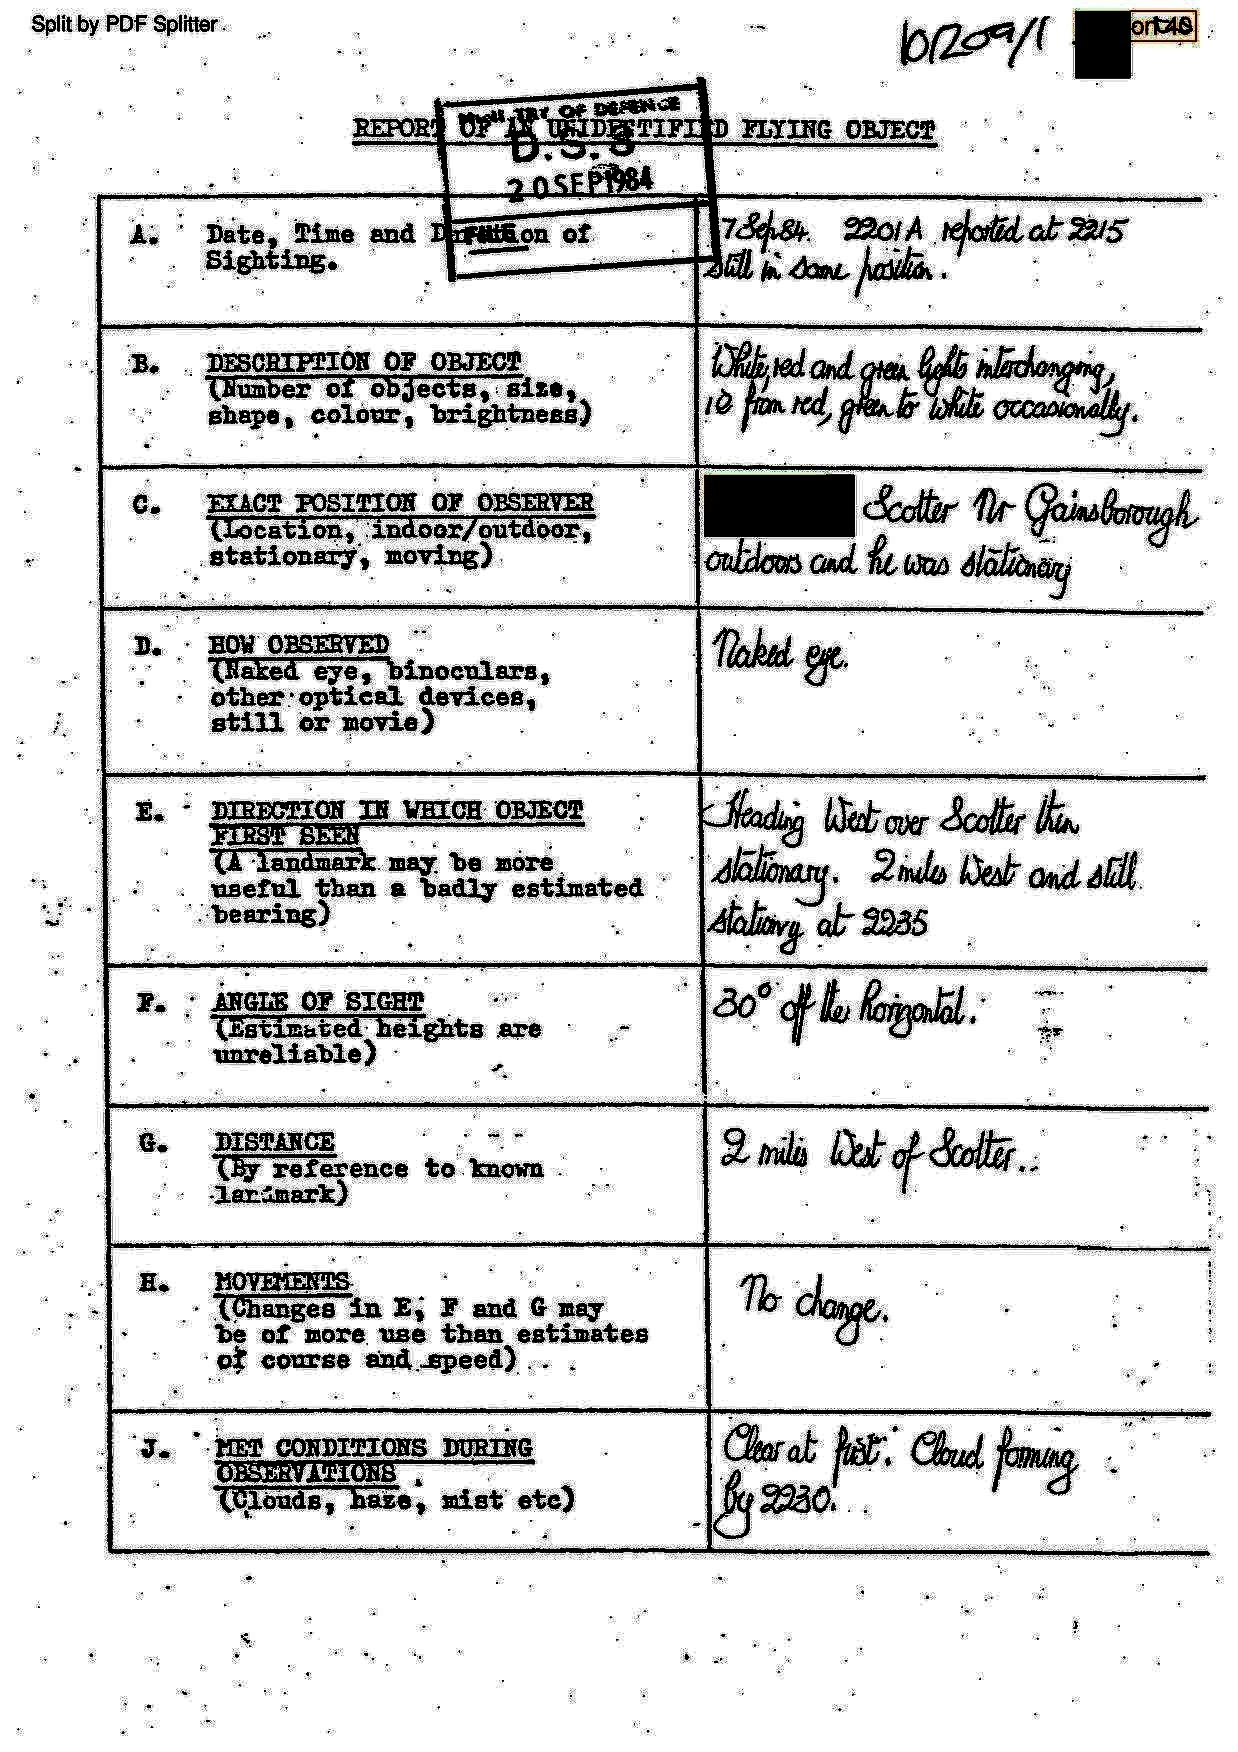 Split by PDF Splitter
MINISTRY OF DEFENCE
REPORT OF AN UNIDENTIFIED FLYING OBJECT
D.S. 8
20 SEP 1984
A. Date, Time and Duration of
Sighting.
7 Sep 84. 2201A reported at 2215
still in same position.
B. DESCRIPTION OF OBJECT
(Number of objects, size,
shape, colour, brightness)
White, red and green lights interchanging,
from red, green to white occasionally.
C. EXACT POSITION OF OBSERVER
(Location, indoor/outdoor,
stationary, moving)
Scotter Nr Gainsborough
outdoors and he was stationary
D. HOW OBSERVED
(Naked eye, binoculars,
other optical devices,
still or movie)
Naked eye.
E. DIRECTION IN WHICH OBJECT
FIRST SEEN
(A landmark may be more
useful than a badly estimated
bearing)
Heading West over Scotter then
stationary. 2 miles West and still
at 2235
F. ANGLE OF SIGHT
(Estimated heights are
unreliable)
30° off the horizontal.
G. DISTANCE
(By reference to known
landmark)
2 miles West of Scotter..
H. MOVEMENTS
(Changes in E, F and G may
be of more use than estimates
of course and speed)
No change.
J. MET CONDITIONS DURING
OBSERVATIONS
(Clouds, haze, mist etc)
Clear at first. Cloud forming
by 2230.